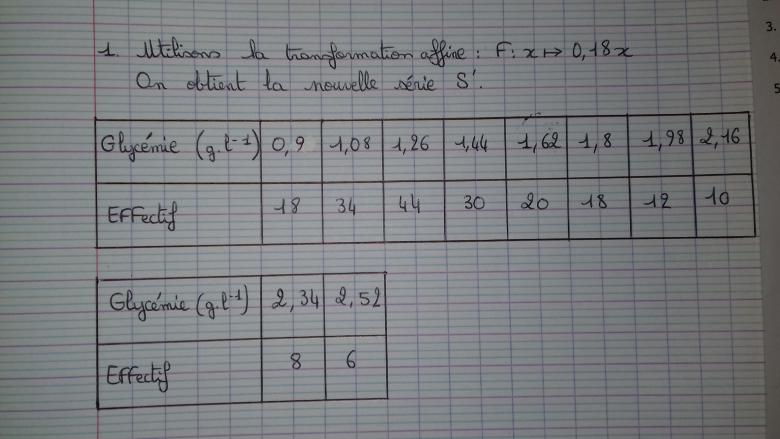 1. Utilisons la transformation affine : F: x ↦ 0,18x
On obtient la nouvelle série S'.
Glycémie (g.l⁻¹) 0,9 1,08 1,26 1,44 1,62 1,8 1,98 2,16
Effectif 18 34 44 30 20 18 12 10
Glycémie (g.l⁻¹) 2,34 2,52
Effectif 8 6
3.
4.
5